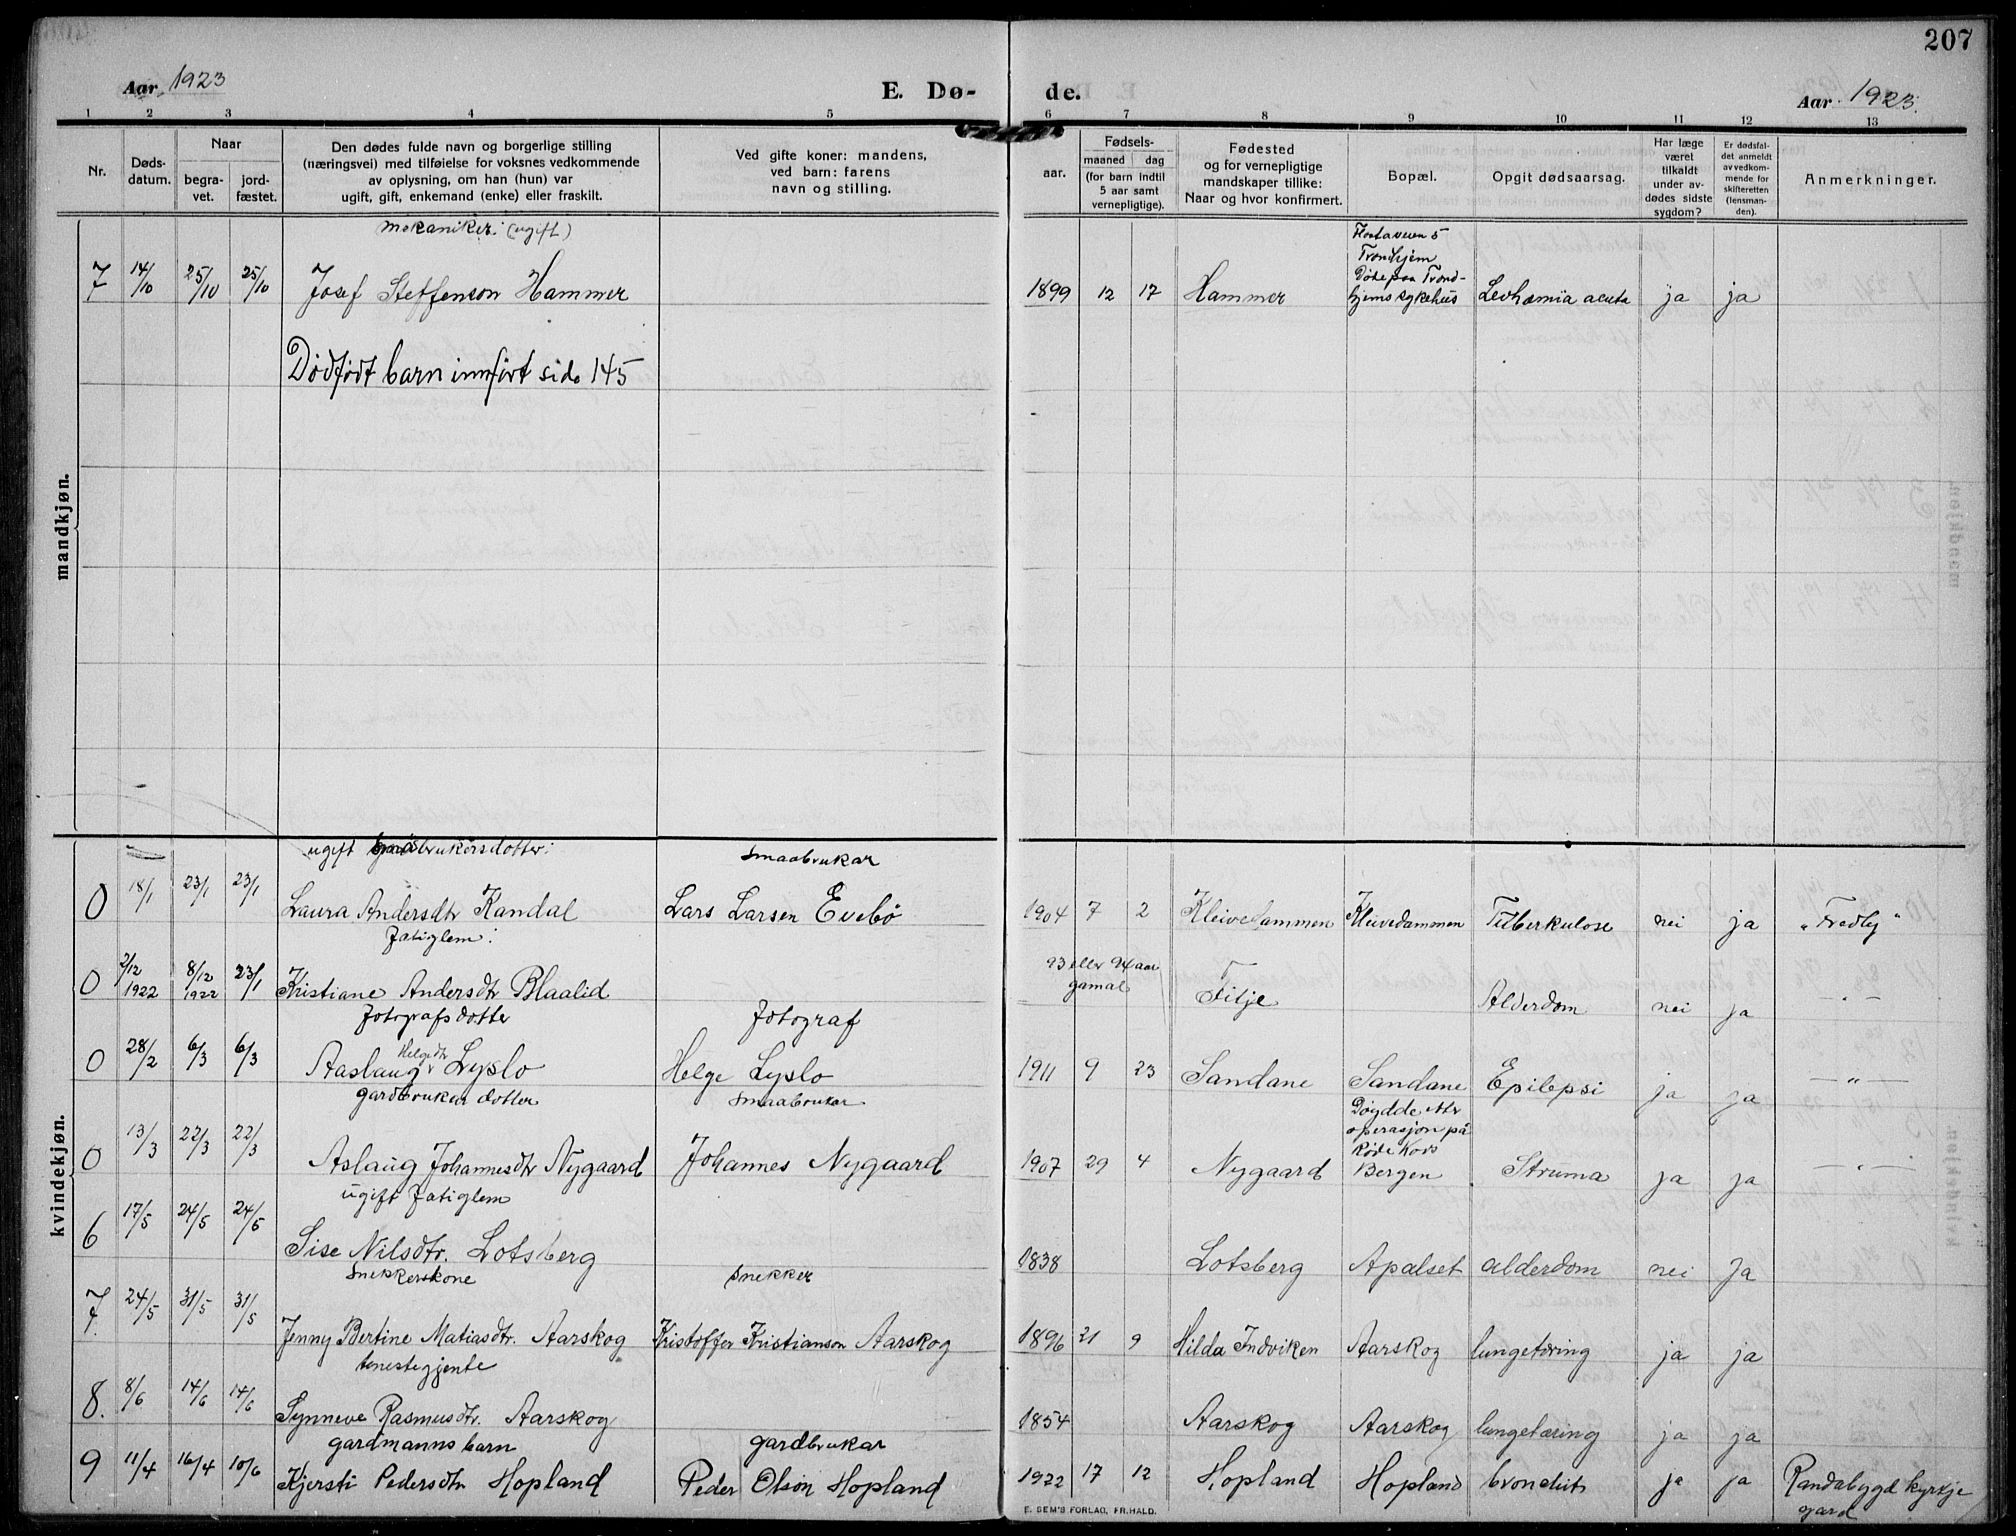 207
Aar 1923
E. Dø-
de.
Aar 1923.
1 2 3 4 5 6 7 8 9 10 11 12 13
Nr.
Døds-
datum.
Naar
begra-
vet.
jord-
fæstet.
Den dødes fulde navn og borgerlige stilling
(næringsvei) med tilføielse for voksnes vedkommende
av oplysning, om han (hun) var
ugift, gift, enkemand (enke) eller fraskilt.
Ved gifte koner: mandens,
ved barn: farens
navn og stilling.
Fødsels-
aar.
maaned dag
(for barn indtil
5 aar samt
vernepligtige).
Fødested
og for vernepligtige
mandskaper tillike:
Naar og hvor konfirmert.
Bopæl.
Opgit dødsaarsag.
Har læge
været
tilkaldt
under av-
dødes sidste
sygdom?
Er dødsfal-
det anmeldt
av vedkom-
mende for
skifteretten
(lensman-
den).
Anmerkninger.
mandkjøn.
mekaniker: (ugift)
7 14/10 25/10 25/10 Josef Steffenson Hammer
1899 12 17 Hammer
Trondhjem
Døde paa Trond-
hjems sykehus
Levhæmia acuta ja ja
Dødfødt barn innført side 145
kvindekjøn.
ugift brukersdotter:
smaabrukar
0 18/1 23/1 23/1 Laura Andersdtr Kandal Lars Larsen Evebø 1904 7 2 Kleivedammen Kleivedammen Tuberkulose nei ja "Fredly"
Fatiglem:
0 2/12 1922 8/12 1922 23/1 Kristiane Andersdtr Blaalid 93 eller 94 aar
gamal Fitje Alderdom nei ja - " -
Fotografsdotter
Fotograf
0 28/2 6/3 6/3 Aaslaug Helgedtr Lyslo Helge Lyslo 1911 9 23 Sandane Sandane Epilepsi ja ja - " -
gardbrukar dotter
smaabrukar
0 13/3 22/3 22/3 Aslaug Johannesdtr Nygaard Johannes Nygaard 1907 29 4 Nygaard
Døydde etter
operasjon på
Røde Kors
Bergen
Struma ja ja - " -
ugift Fatiglem
6 17/5 24/5 24/5 Sise Nilsdtr. Lotsberg 1838 Lotsberg Apalset alderdom nei Ja
Snekkerskone
snekker
7. 24/5 31/5 31/5 Jenny Bertine Matiasdtr. Aarskog Kristoffer Kristianson Aarskog 1896 21 9 Hilda Indviken Aarskog lungetæring ja ja
tenestegjente
8. 8/6 14/6 14/6 Synneve Rasmusdtr. Aarskog 1854 Aarskog Aarskog lungetæring ja ja
gardmanns barn
gardbrukar
9 11/4 16/4 10/6 Kjersti Pedersdtr Hopland Peder Olson Hopland 1922 17 12 Hopland Hopland bronchit ja ja Randabygd kyrkje
gard
E. SEM'S FORLAG, FR.HALD.